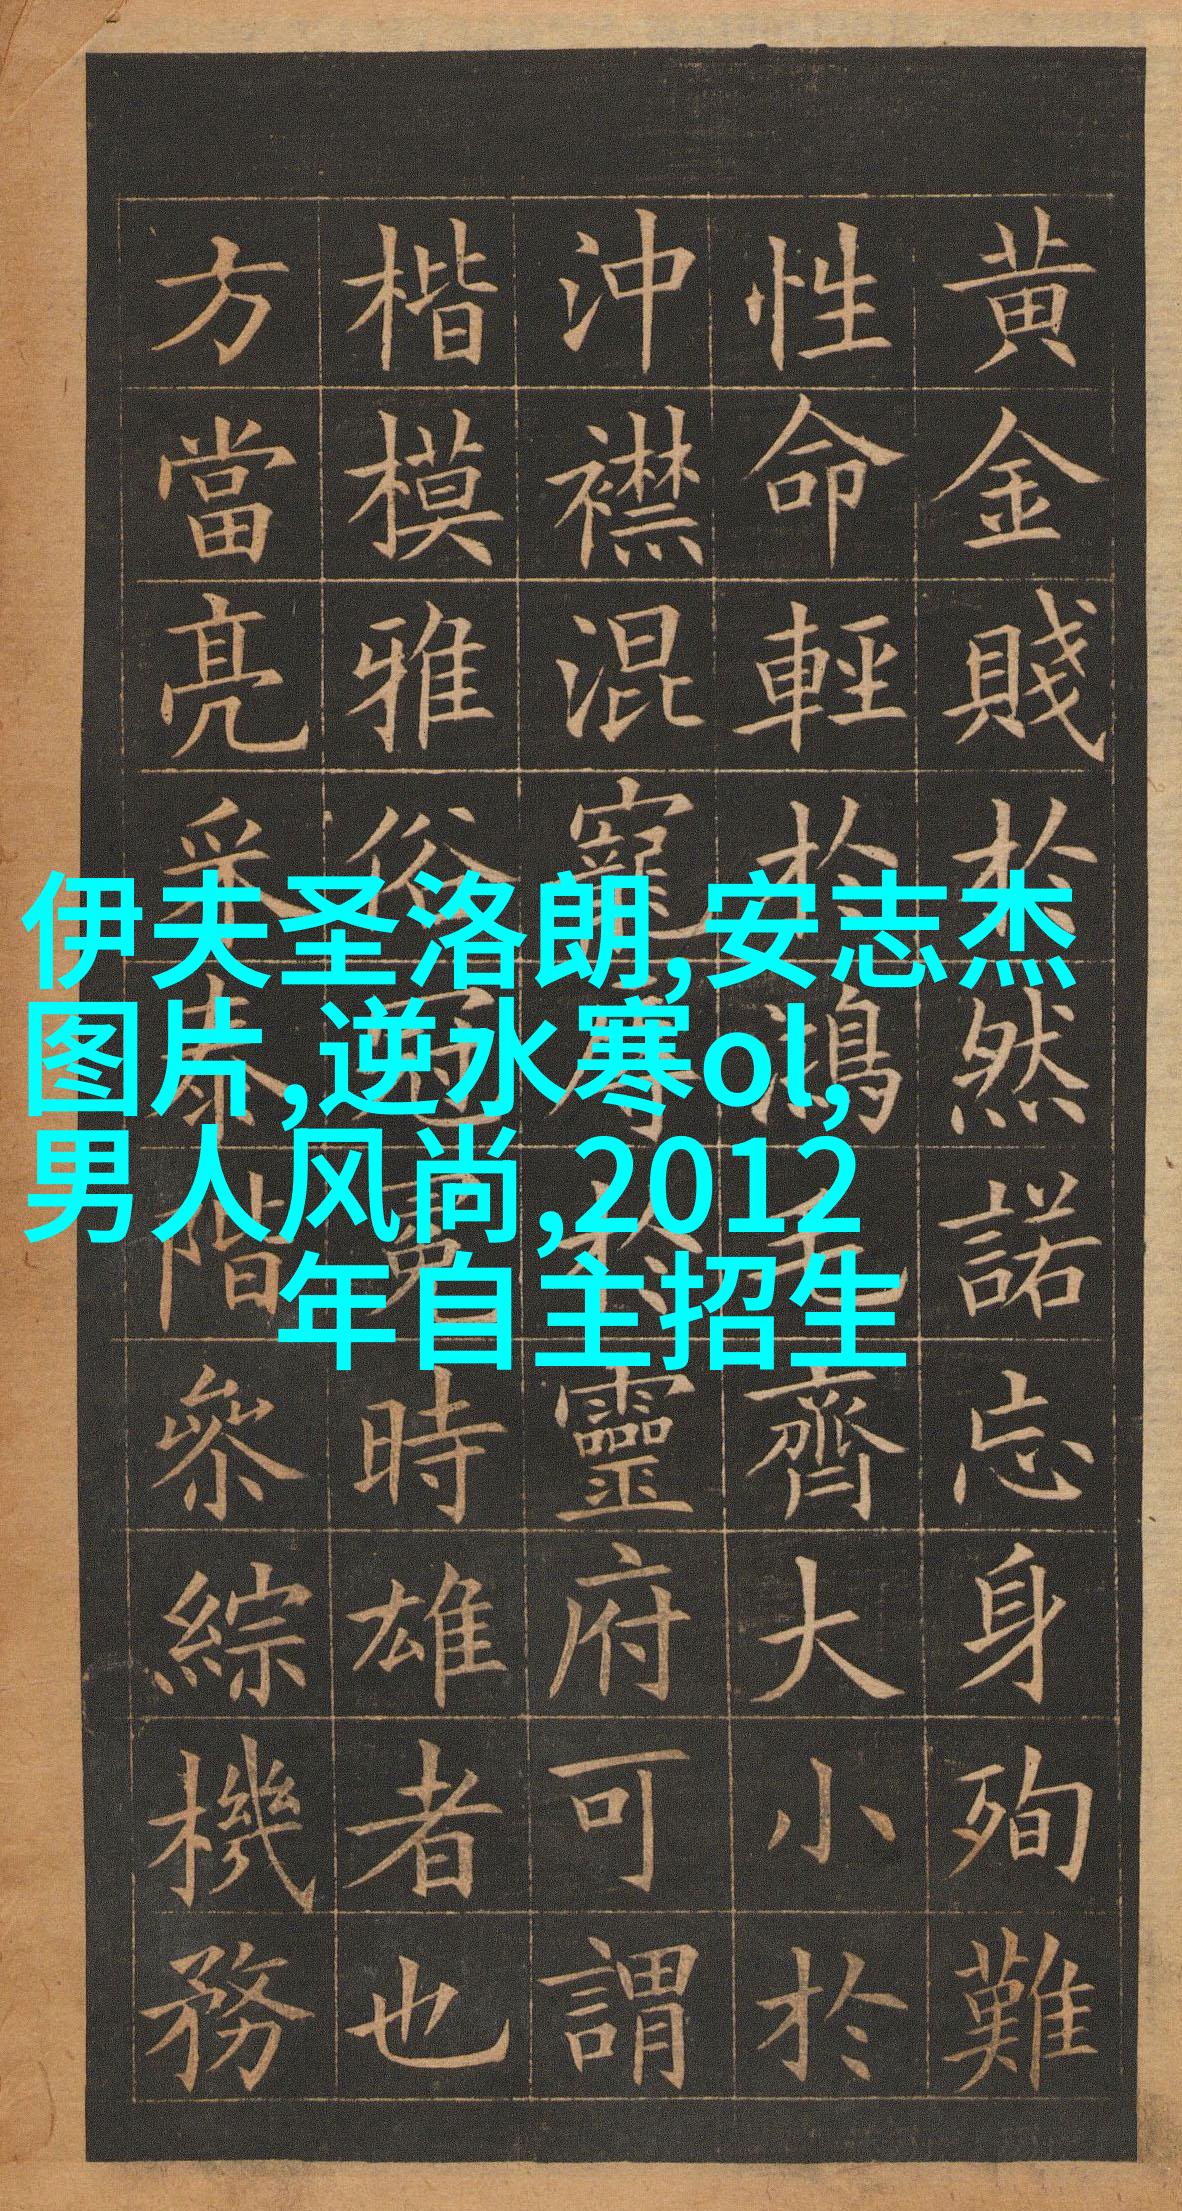 黄金賤於然諾忘身殉難
性命輕於鴻毛齊大小於
沖襟混寵辱於靈府可謂
楷模雅俗冠冕時雄者也
方當亮采泰階參綜機務
伊夫圣洛朗,安志杰
图片,逆水寒ol,
男人风尚,2012
年自主招生